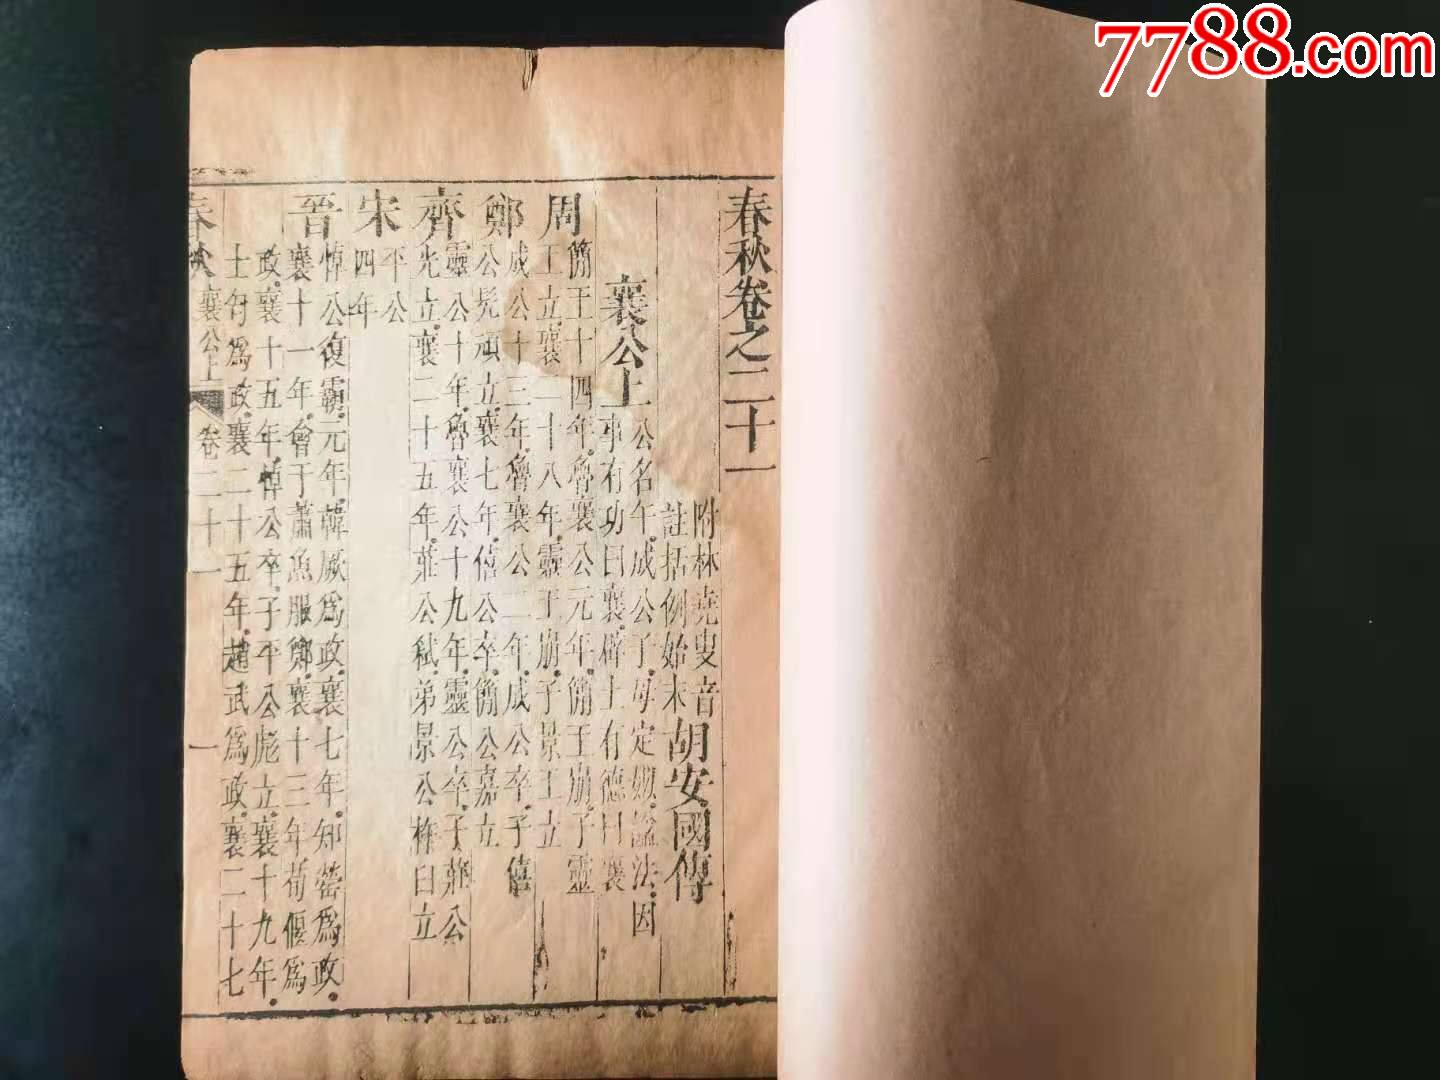 7788.com
春秋卷之二十一
附林堯叟音
註括例始末
胡安國傳
襄公上
公名午成公子母定姒諡法因
事有功曰襄辟土有德曰襄
周
簡王十四年魯襄公元年簡王崩子靈
王立襄二十八年靈王崩子景王立
鄭
成公十三年魯襄公二年成公卒子僖
公髠頑立襄七年僖公卒簡公嘉立
齊
靈公十年魯襄公十九年靈公卒子莊公
光立襄二十五年莊公弒弟景公杵臼立
宋
平公
四年
晉
悼公復霸元年韓厥爲政襄七年知罃爲政
襄十一年會于蕭魚服鄭襄十三年荀偃爲
政襄十五年悼公卒子平公彪立襄十九年
士匄爲政襄二十五年趙武爲政襄二十七
春秋 襄公上 卷二十一 一